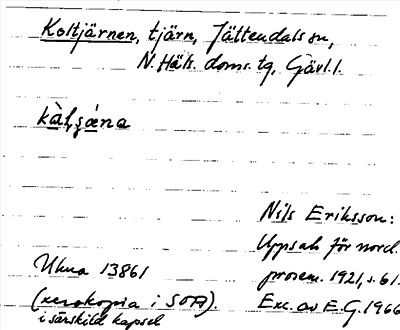 Koltjärnen, tjärn, Jättendals sn,
N. Häls. doms. tg, Gävl. l.
Nils Eriksson:
Uppsats för nord.
Ukua 13861
prosem. 1921, s. 61.
(xerokopia i SOA).
Exc. av E.G. 1966
i särskild kapsel